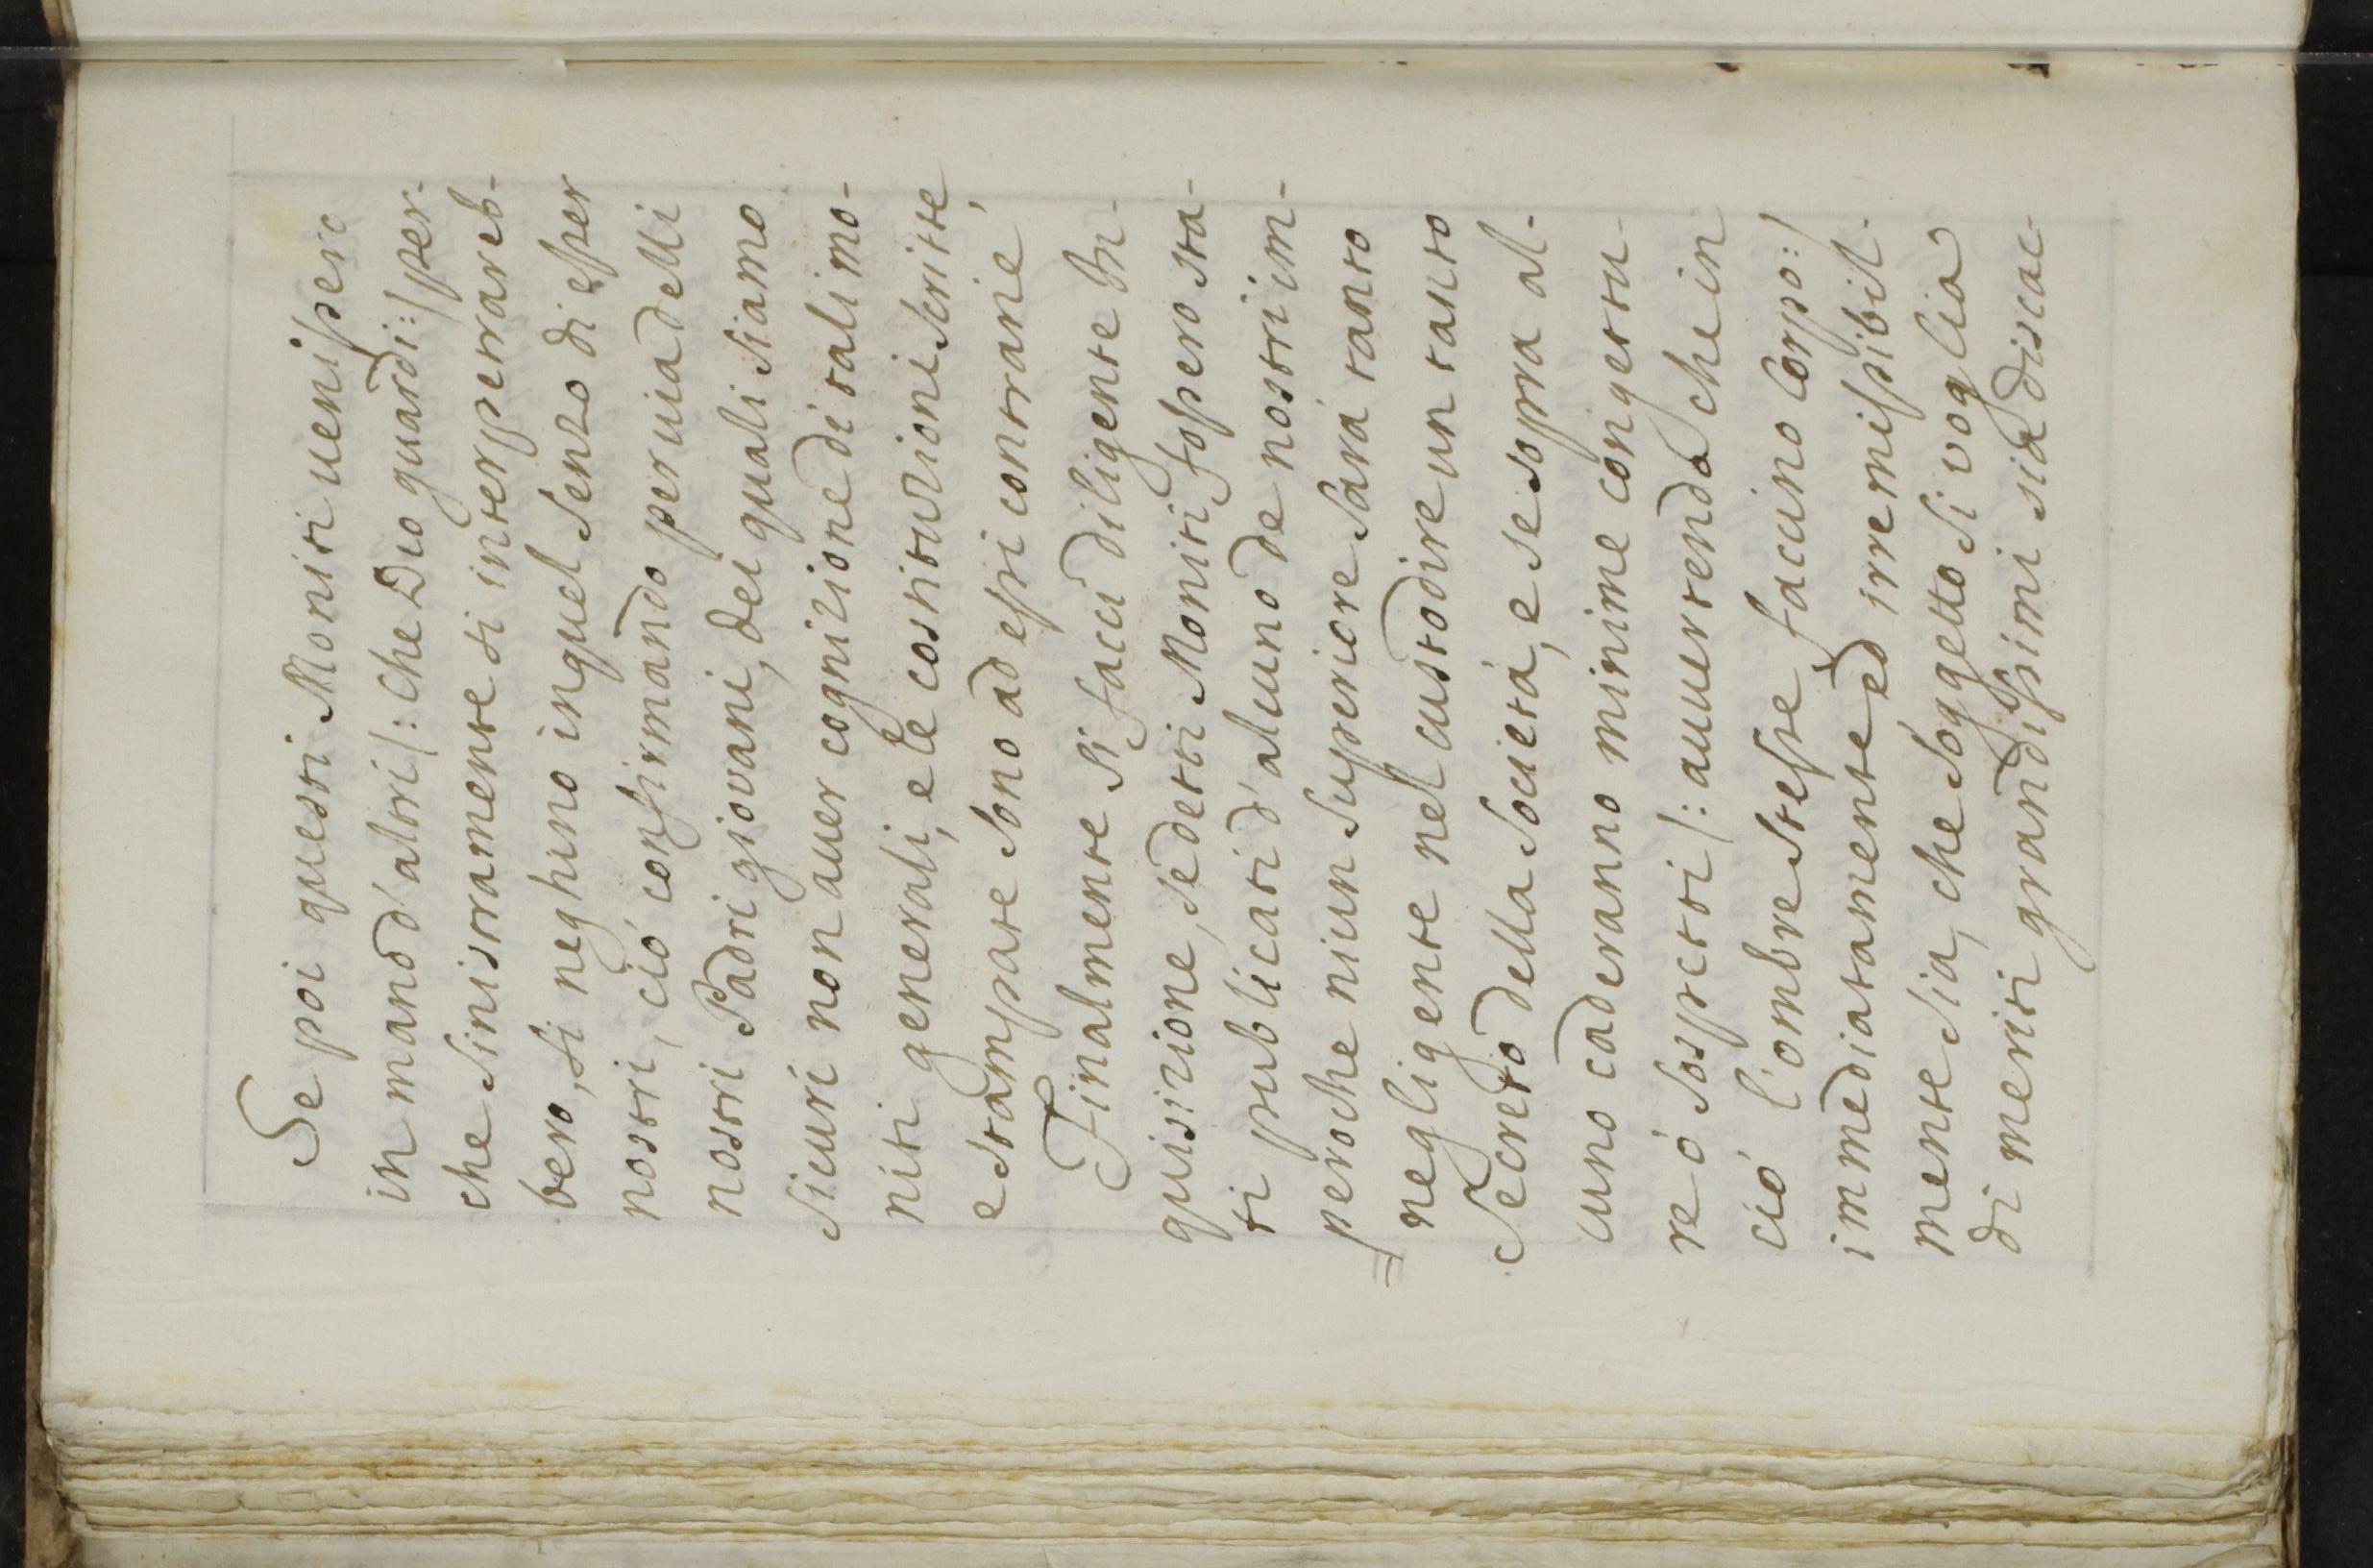 Se poi questi Moniti uenissero
in mano d'altri /: che Dio guardi :/ per-
che sinistramente si interpetrareb-
bero, si neghino in quel senzo di esser
nostri, ció confirmando per uia delli
nostri Padri giovani, dei quali siamo
sicuri non auer cognizione di tali mo-
niti generali, e le costituzioni scritte,
e stampate sono ad essi contrarie,
Finalmente si facci diligente In-
quisizione, se detti Moniti fossero sta-
ti publicati d'alcuno de nostri im-
peroche niun superiore sará tanto
negligente nel custodire un tanto
Secreto della Societá, e se sopra al-
cuno caderanno minime congettu-
re ó sospetti /: auuertendo che in
ció l'ombre stesse faccino corpo :/
immediatamente ed irremissibil-
mente sia, che soggetto si voglia
di meriti grandissimi sia discac-